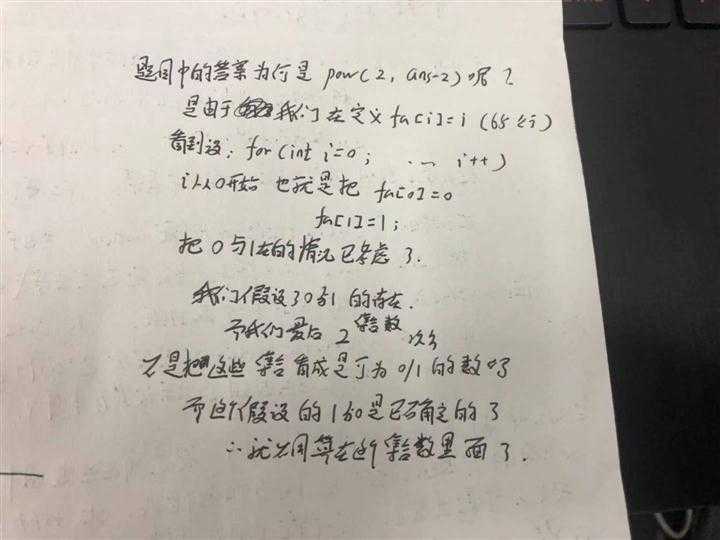 题目中的答案为何是 pow(2, ans-2) 呢?
是由于我们在定义 fa[i]=i (65行)
看到没: for(int i=0; ... i++)
i从0开始 也就是把 fa[0]=0
fa[1]=1;
把 0与1在的情况已考虑了.
我们假设了0和1的存在.
而我们最后 2集合数次方
不是把这些集合看成是可为0/1的数吗
而这个假设的1和0是已确定的了
∴就不用算在这个集合数里面了.